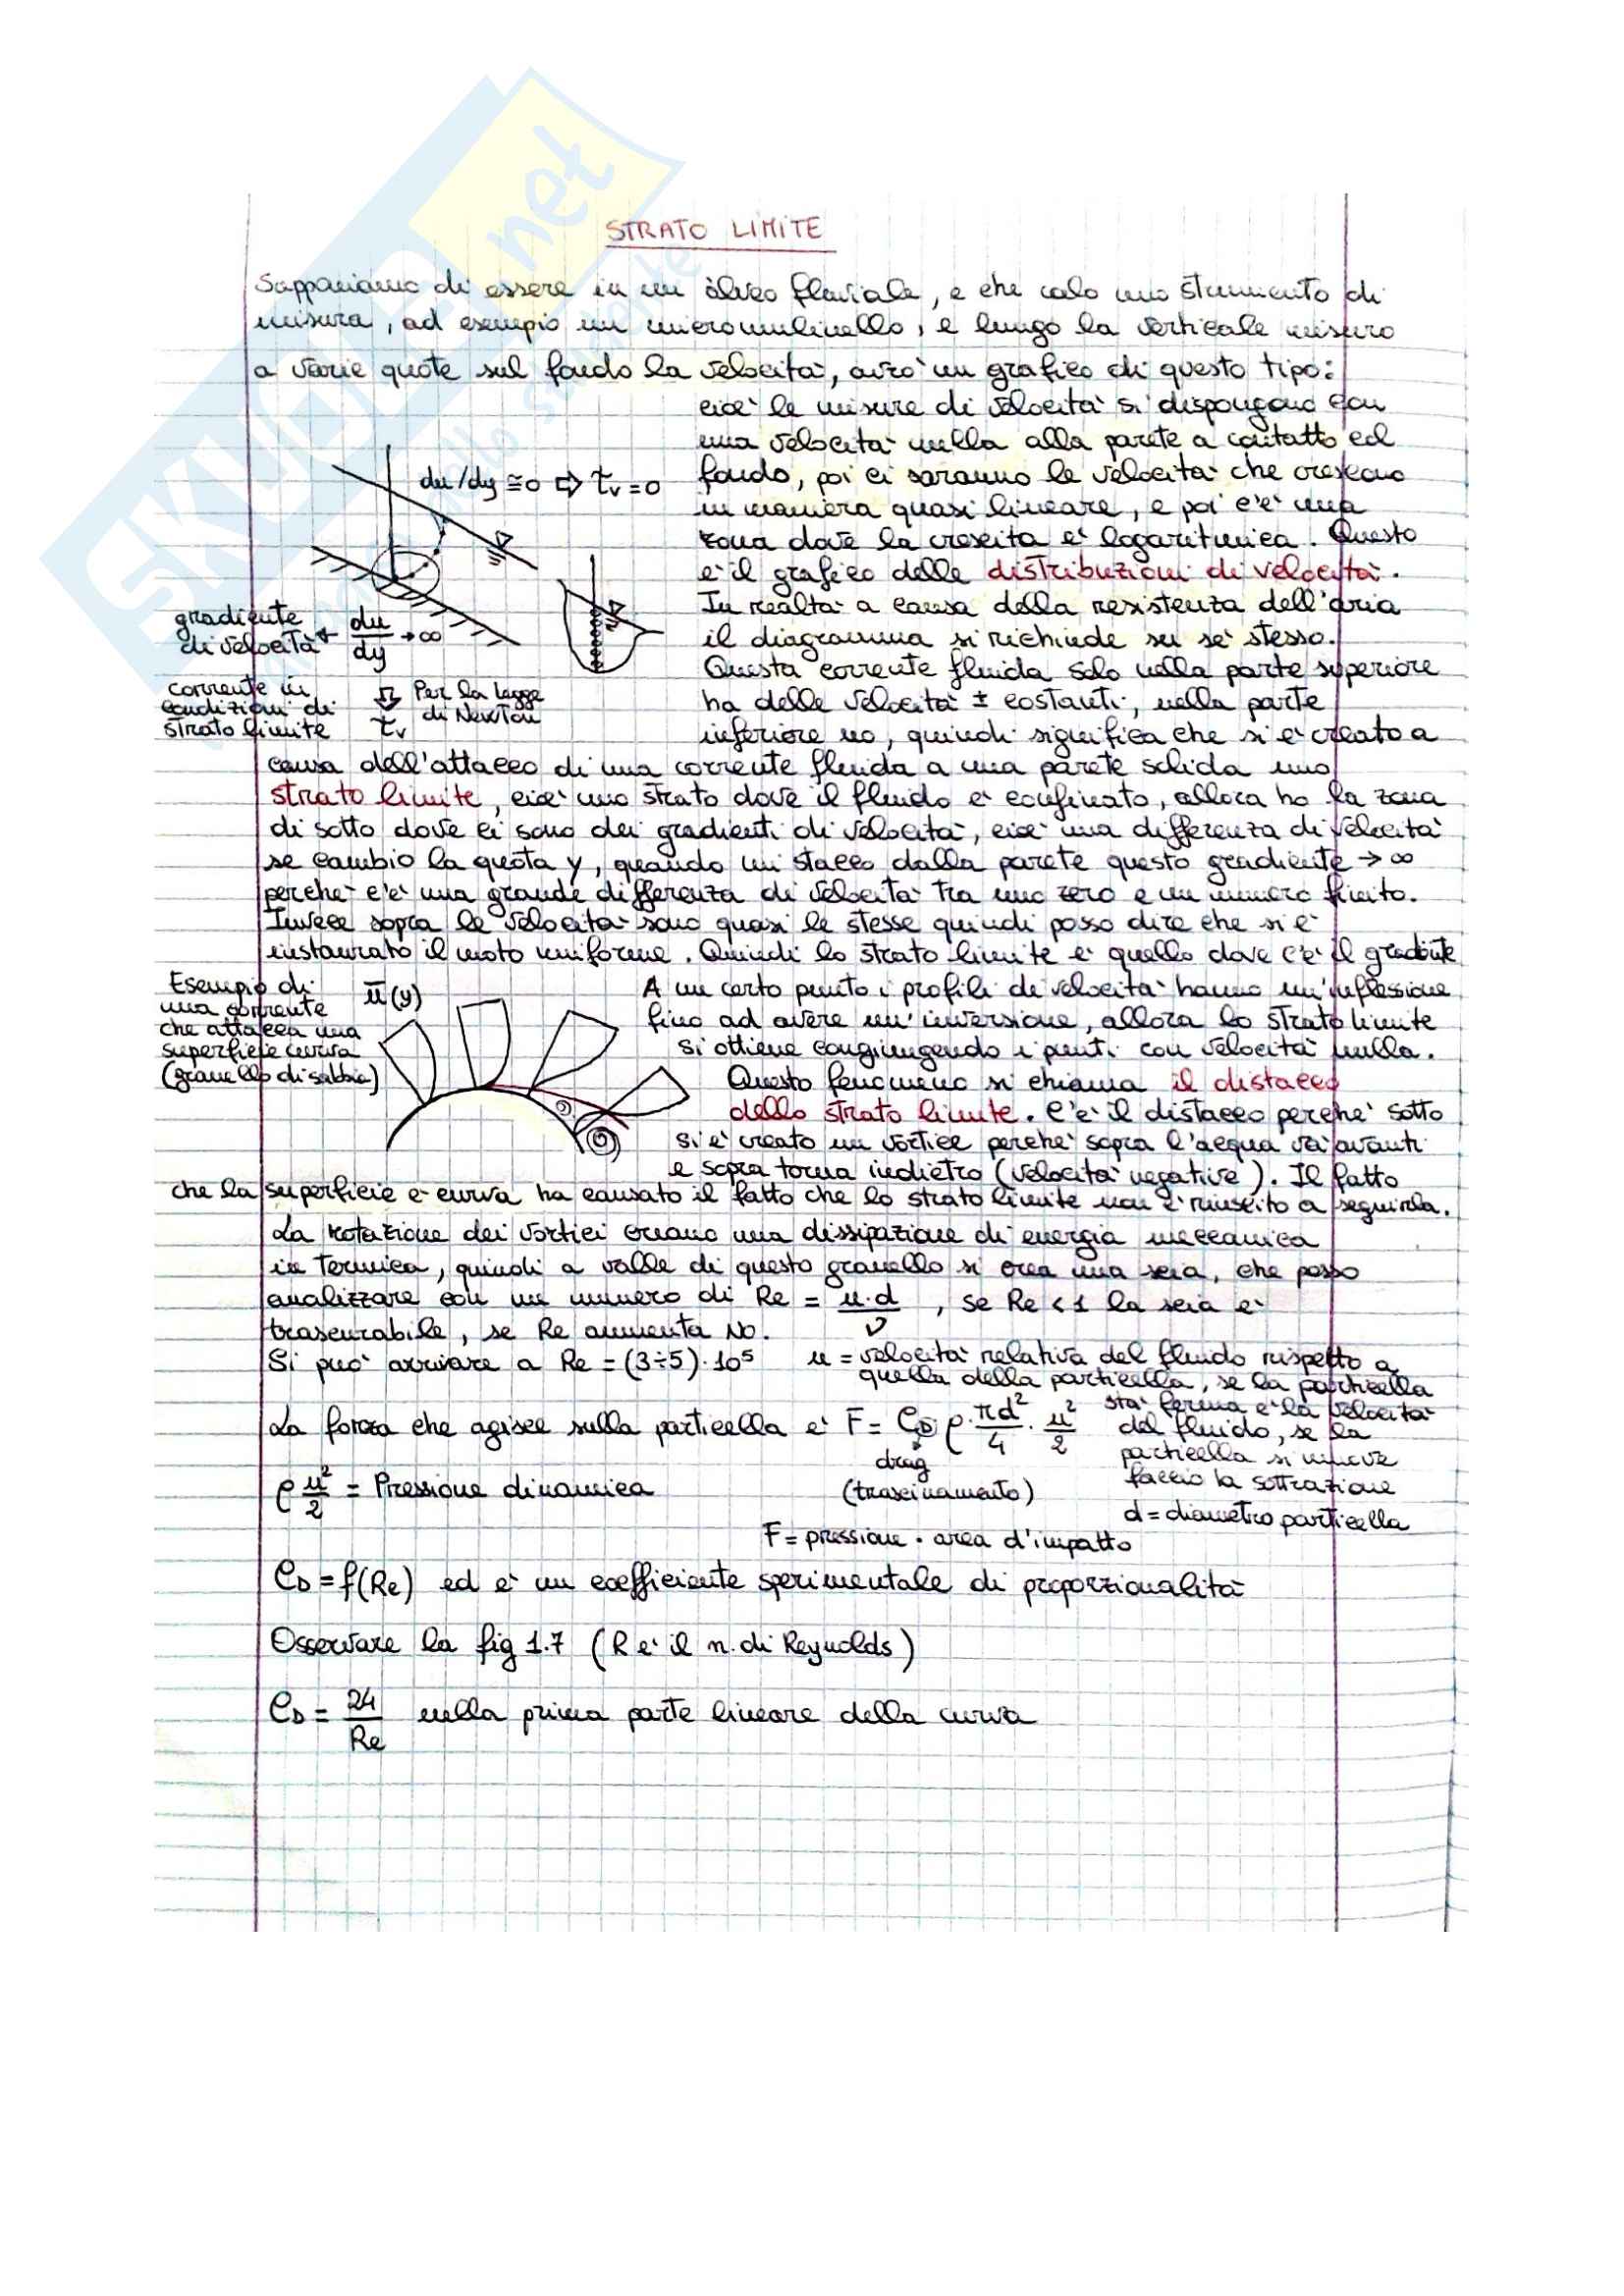 STRATO LIMITE
Supponiamo di essere in un àlveo fluviale, e che calo uno strumento di
misura, ad esempio un micromulinello, e lungo la verticale misuro
a varie quote sul fondo la velocità, avrò un grafico di questo tipo:
cioè le misure di velocità si dispongono con
una velocità nulla alla parete a contatto col
fondo, poi ci saranno le velocità che crescono
in maniera quasi lineare, e poi c'è una
zona dove la crescita è logaritmica. Questo
è il grafico delle distribuzioni di velocità.
In realtà a causa della resistenza dell'aria
il diagramma si richiude su sè stesso.
Questa corrente fluida solo nella parte superiore
ha delle velocità ± costanti, nella parte
inferiore no, quindi significa che si è creato a
du/dy ≅ 0 ⇨ τv = 0
gradiente
di velocità ← du/dy → ∞
corrente in
condizioni di
strato limite
⇩ Per la legge
di Newton
τv
causa dell'attacco di una corrente fluida a una parete solida uno
strato limite, cioè uno strato dove il fluido è confinato, allora ho la zona
di sotto dove ci sono dei gradienti di velocità, cioè una differenza di velocità
se cambio la quota y, quando mi stacco dalla parete questo gradiente → ∞
perchè c'è una grande differenza di velocità tra uno zero e un numero finito.
Invece sopra le velocità sono quasi le stesse quindi posso dire che si è
instaurato il moto uniforme. Quindi lo strato limite è quello dove c'è il gradiente
Esempio di
una corrente
che attacca una
superficie curva
(granello di sabbia)
ū(y)
A un certo punto i profili di velocità hanno un'inflessione
fino ad avere un'inversione, allora lo strato limite
si ottiene congiungendo i punti con velocità nulla.
Questo fenomeno si chiama il distacco
dello strato limite. C'è il distacco perchè sotto
si è creato un vortice perchè sopra l'acqua va avanti
e sopra torna indietro (velocità negative). Il fatto
che la superficie è curva ha causato il fatto che lo strato limite non è riuscito a seguirla.
La rotazione dei vortici creano una dissipazione di energia meccanica
in termica, quindi a valle di questo granello si crea una scia, che posso
analizzare con un numero di Re = u·d/ν , se Re < 1 la scia è
trascurabile, se Re aumenta NO.
Si può arrivare a Re = (3÷5)·10⁵
u = velocità relativa del fluido rispetto a
quella della particella, se la particella
sta ferma è la velocità
del fluido, se la
particella si muove
faccio la sottrazione
d = diametro particella
La forza che agisce sulla particella è F = CD ρ · πd²/4 · u²/2
drag
(trascinamento)
ρ u²/2 = Pressione dinamica
F = pressione · area d'impatto
CD = f(Re) ed è un coefficiente sperimentale di proporzionalità
Osservare la fig 1.7 (R è il n. di Reynolds)
CD = 24/Re nella prima parte lineare della curva
SKUOLA.net